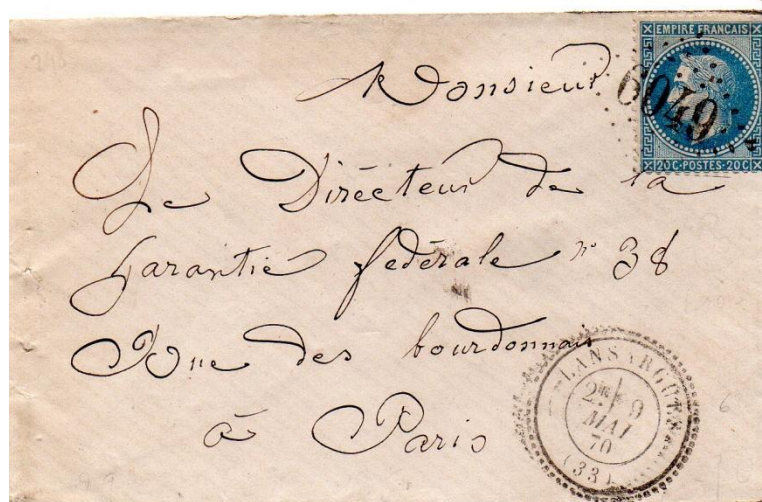 EMPIRE FRANÇAIS
6049
20C·POSTES·20C
Monsieur
Le Directeur de la
garantie fédérale n° 38
Rue des bourdonnais
à Paris
LANSARGUES
2E 9
MAI
70
(33)